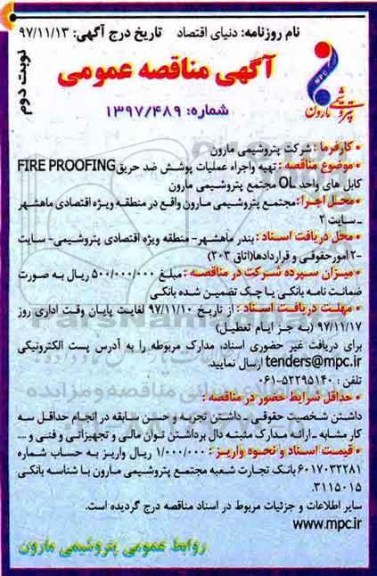 نام روزنامه: دنیای اقتصاد تاریخ درج آگهی: ۹۷/۱۱/۱۳
نوبت دوم
آگهی مناقصه عمومی
شماره: ۱۳۹۷/۴۸۹
MPC
پتروشیمی مارون
• کارفرما: شرکت پتروشیمی مارون
• موضوع مناقصه: تهیه واجراء عملیات پوشش ضد حریق FIRE PROOFING
کابل های واحد OL مجتمع پتروشیمی مارون
• محل اجرا: مجتمع پتروشیمی مارون واقع در منطقه ویژه اقتصادی ماهشهر
ـ سایت ۲
• محل دریافت اسناد: بندر ماهشهر- منطقه ویژه اقتصادی پتروشیمی- سایت
۲- امورحقوقی و قراردادها(اتاق ۲۰۳)
• میزان سپرده شرکت در مناقصه: مبلغ ۵۰۰/۰۰۰/۰۰۰ ریال به صورت
ضمانت نامه بانکی یا چک تضمین شده بانکی
• مهلت دریافت اسناد: از تاریخ ۹۷/۱۱/۱۰ لغایت پایان وقت اداری روز
۹۷/۱۱/۱۷ (به جز ایام تعطیل)
برای دریافت غیر حضوری اسناد، مدارک مربوطه را به آدرس پست الکترونیکی
tenders@mpc.ir ارسال نمایید.
تلفن: ۰۶۱-۵۲۲۹۵۱۴۰
• حداقل شرایط حضور در مناقصه:
داشتن شخصیت حقوقی ـ داشتن تجربه و حسن سابقه در انجام حداقل سه
کار مشابه ـ ارائه مدارک مثبته دال برداشتن توان مالی و تجهیزاتی و فنی و ...
• قیمت اسناد و نحوه واریز: ۱/۰۰۰/۰۰۰ ریال واریز به حساب شماره
۶۰۱۷۰۳۲۲۸۱ بانک تجارت شعبه مجتمع پتروشیمی مارون با شناسه بانکی
۳۱۱۵۰۱۵.
سایر اطلاعات و جزئیات مربوط در اسناد مناقصه درج گردیده است.
www.mpc.ir
روابط عمومی پتروشیمی مارون